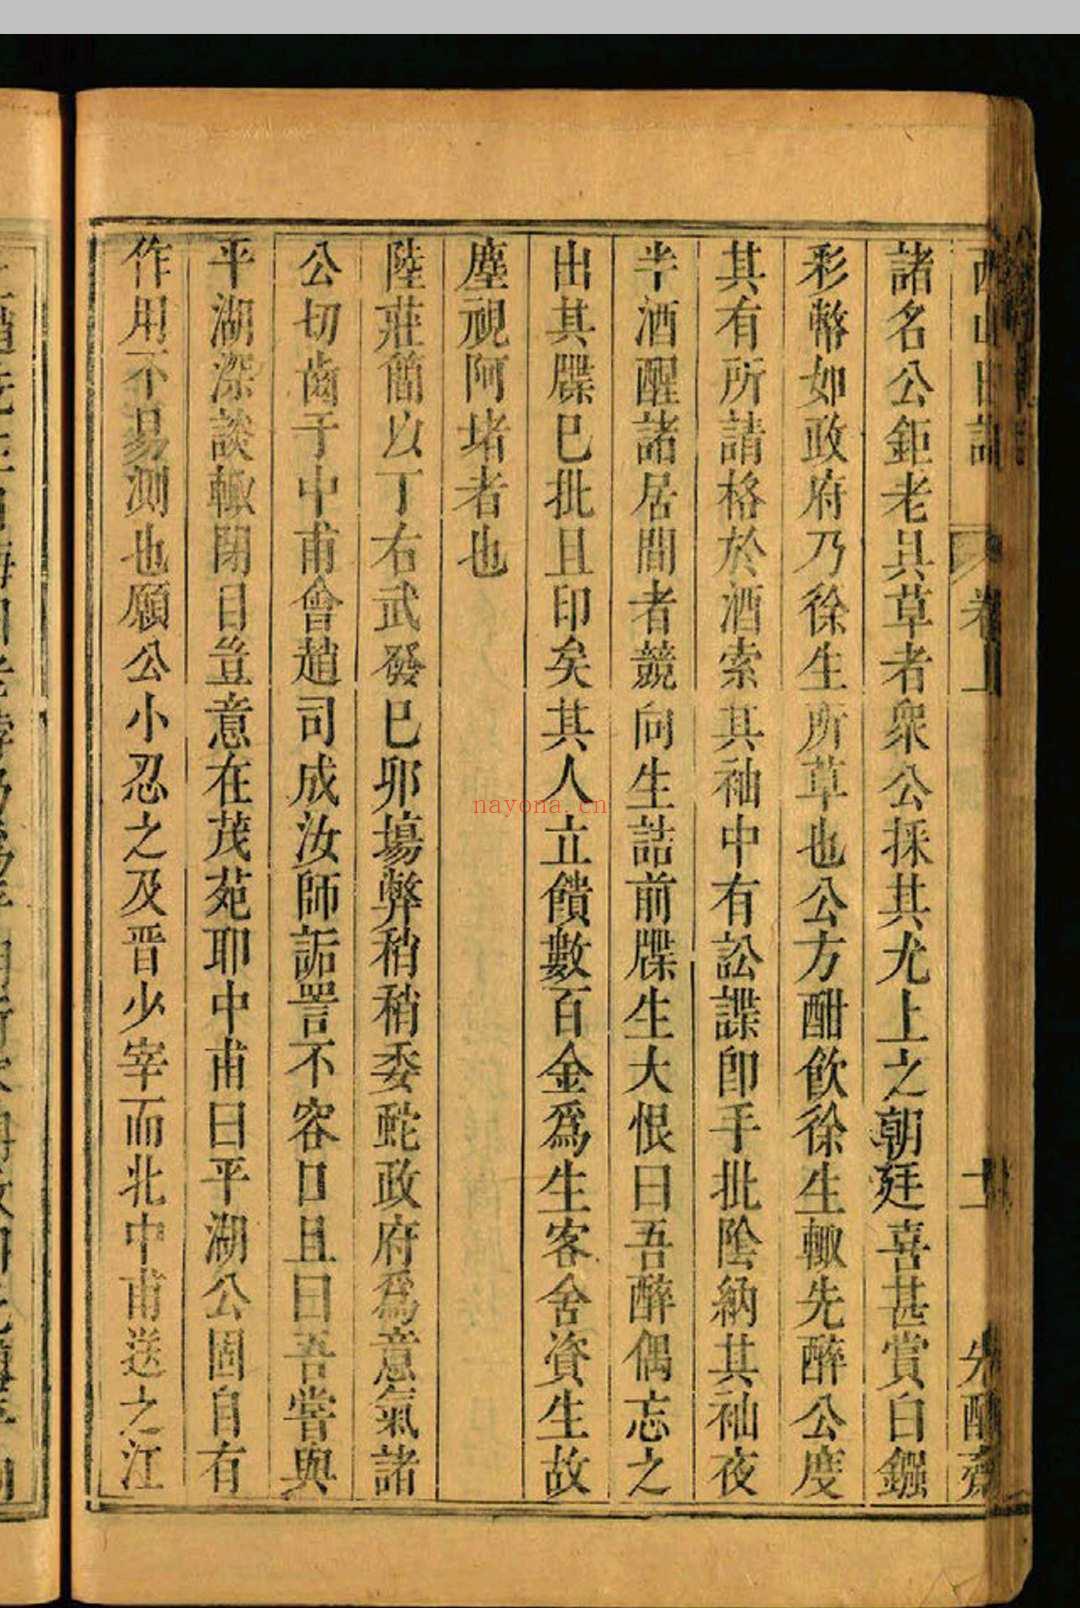 西山日記 卷上 十一 先醒齋
諸名公鉅老具草者衆公採其尤上之朝廷喜甚賞白鏹
彩幣如政府乃徐生所草也公方酣飲徐生輙先醉公度
其有所請格於酒索其袖中有訟諜卽手批陰納其袖夜
半酒醒諸居間者競向生詰前牒生大恨曰吾醉偶忘之
出其牒巳批且印矣其人立饋數百金爲生客舍資生故
塵視阿堵者也
陸莊簡以丁右武發巳卯塲弊稍稍委蛇政府爲意氣諸
公切齒于中甫會趙司成汝師詬詈不容口且曰吾嘗與
平湖深談輙閉目豈意在茂苑耶中甫曰平湖公固自有
作用不易測也願公小忍之及晋少宰而北中甫送之江
nayona.cn